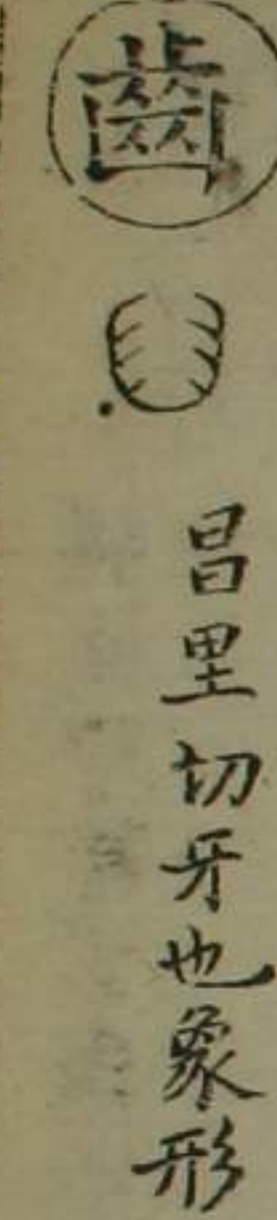 齒
昌里切牙也象形